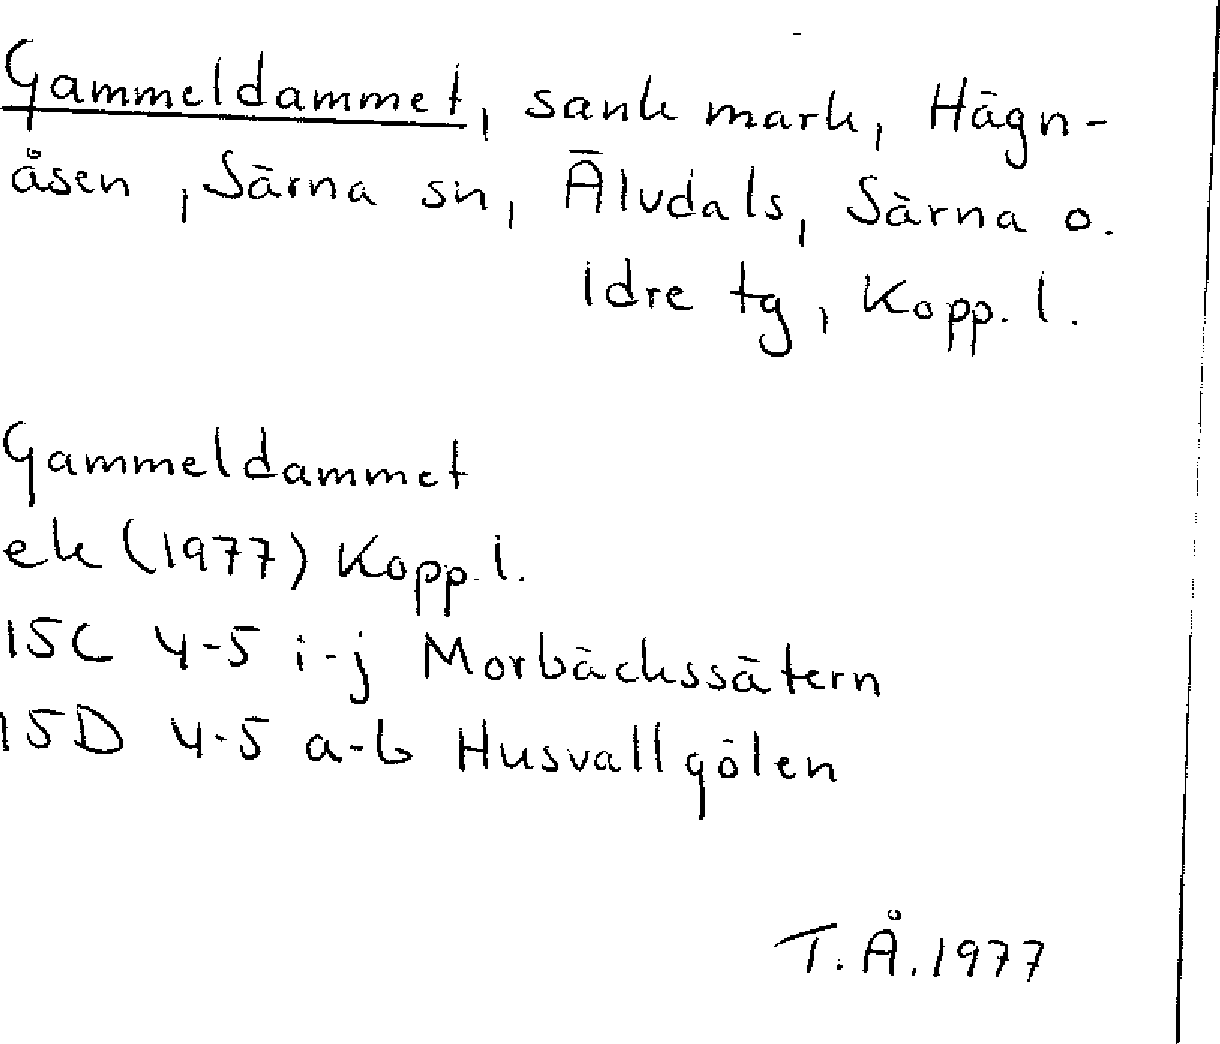 Gammeldammet, sank mark, Hägn-
åsen, Särna sn, Älvdals, Särna o.
Idre tg, Kopp. l.
Gammeldammet
ek (1977) Kopp. l.
15C 4-5 i-j Morbäckssätern
15D 4-5 a-b Husvallgölen
T. Å. 1977